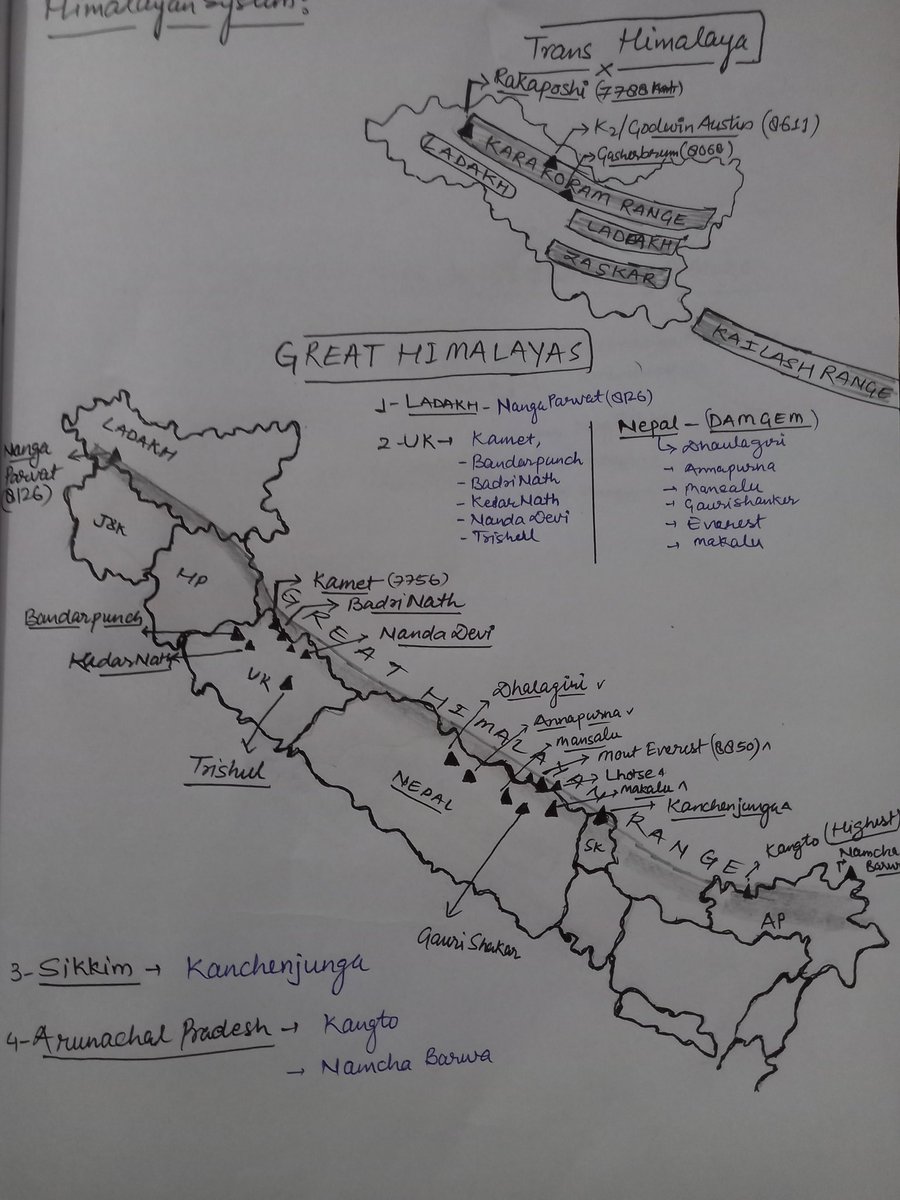 Himalayan System:
Trans Himalaya
Rakaposhi (7788
K2/Godwin Austin (8611)
Gasherbrum (8068)
KARAKORAM RANGE
LADAKH
LADAKH
ZASKAR
KAILASH RANGE
GREAT HIMALAYAS
1- LADAKH - Nanga Parwat (8126)
2- UK → Kamet,
- Bandarpunch
- Badri Nath
- Kedar Nath
- Nanda Devi
- Trishul
Nepal - (DAMGEM)
↳ Dhaulagiri
→ Annapurna
→ Mansalu
→ Gaurishanker
→ Everest
→ Makalu
LADAKH
Nanga
Parwat
(8126)
J&K
HP
Kamet (7756)
Badri Nath
Bandarpunch
Nanda Devi
Kedar Nath
UK
Trishul
GREAT HIMALAYAN RANGE
Dhalagiri
Annapurna
Mansalu
Mout Everest (8850)
Lhotse
Makalu
Kanchenjunga
NEPAL
SK
Gauri Shakar
Kangto (Highest)
Namcha
Barw
AP
3- Sikkim → Kanchenjunga
4- Arunachal Pradesh → Kangto
→ Namcha Barwa